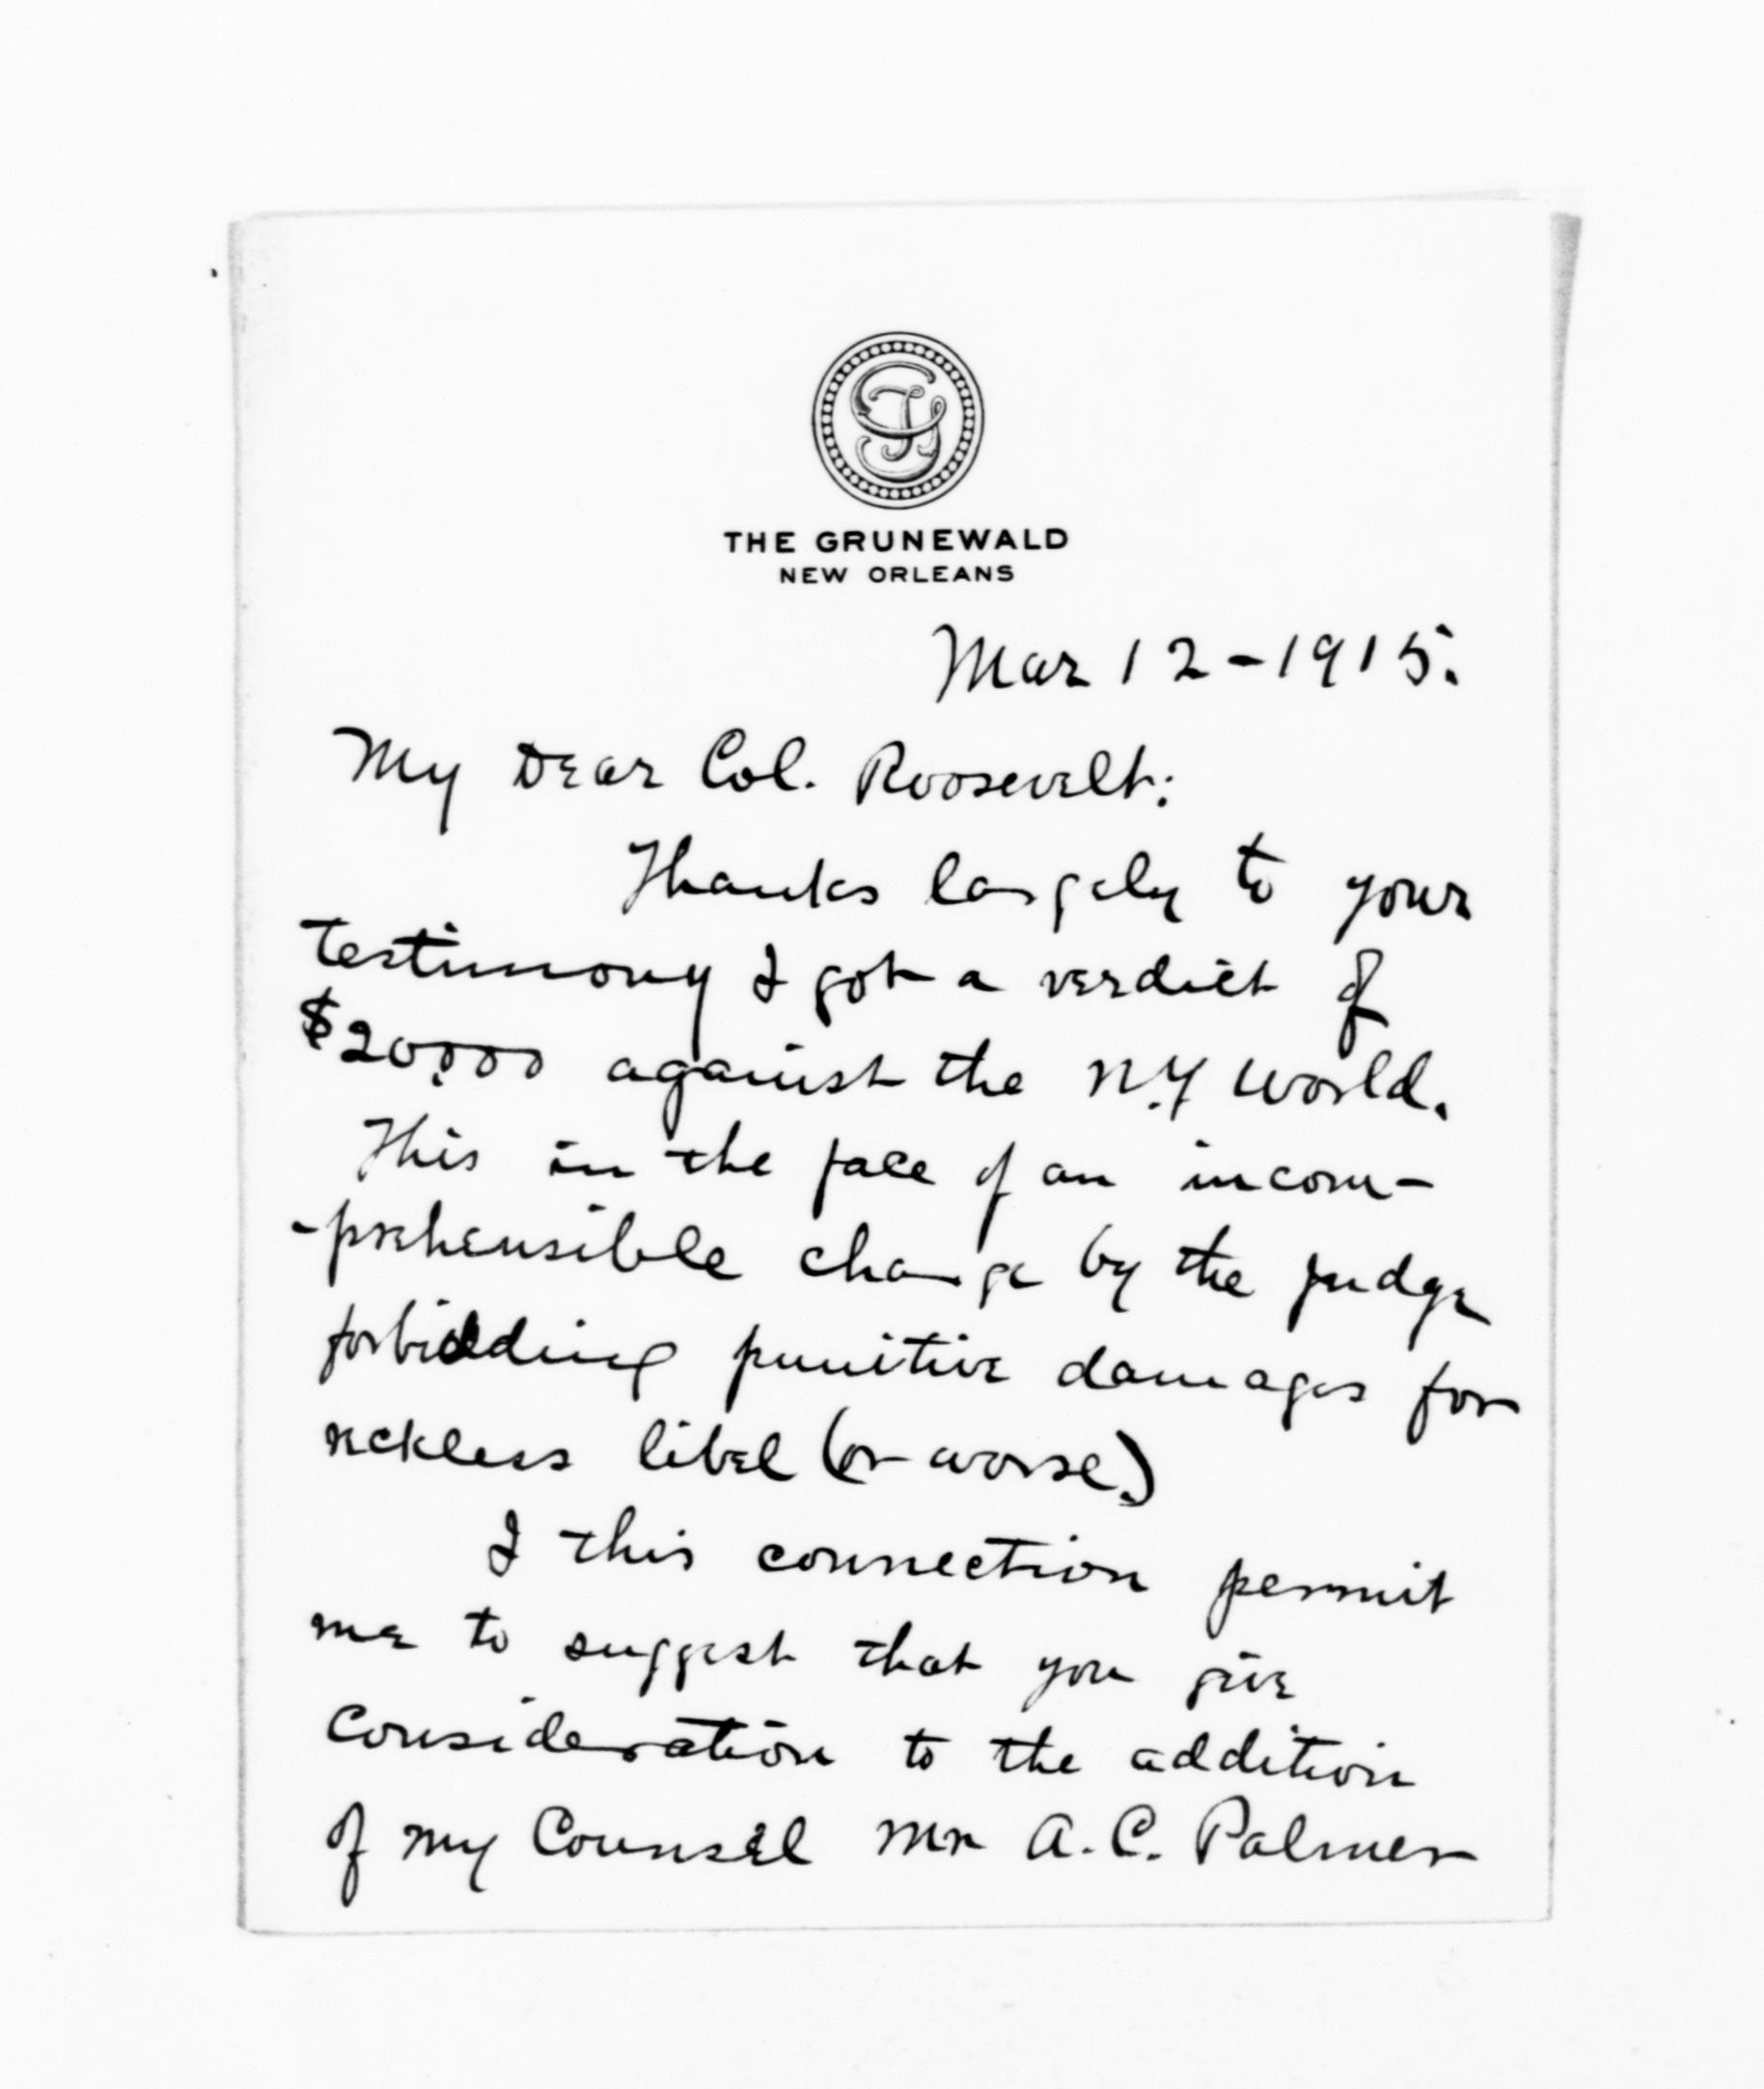 THE GRUNEWALD
NEW ORLEANS
Mar 12-1915.
My Dear Col. Roosevelt:
Thanks largely to your
testimony I got a verdict of
$20,000 against the N.Y World.
This in the face of an incom-
-prehensible charge by the judge
forbidding punitive damages for
reckless libel (or worse.)
I this connection permit
me to suggest that you give
consideration to the addition
of my Counsel Mr A. C. Palmer